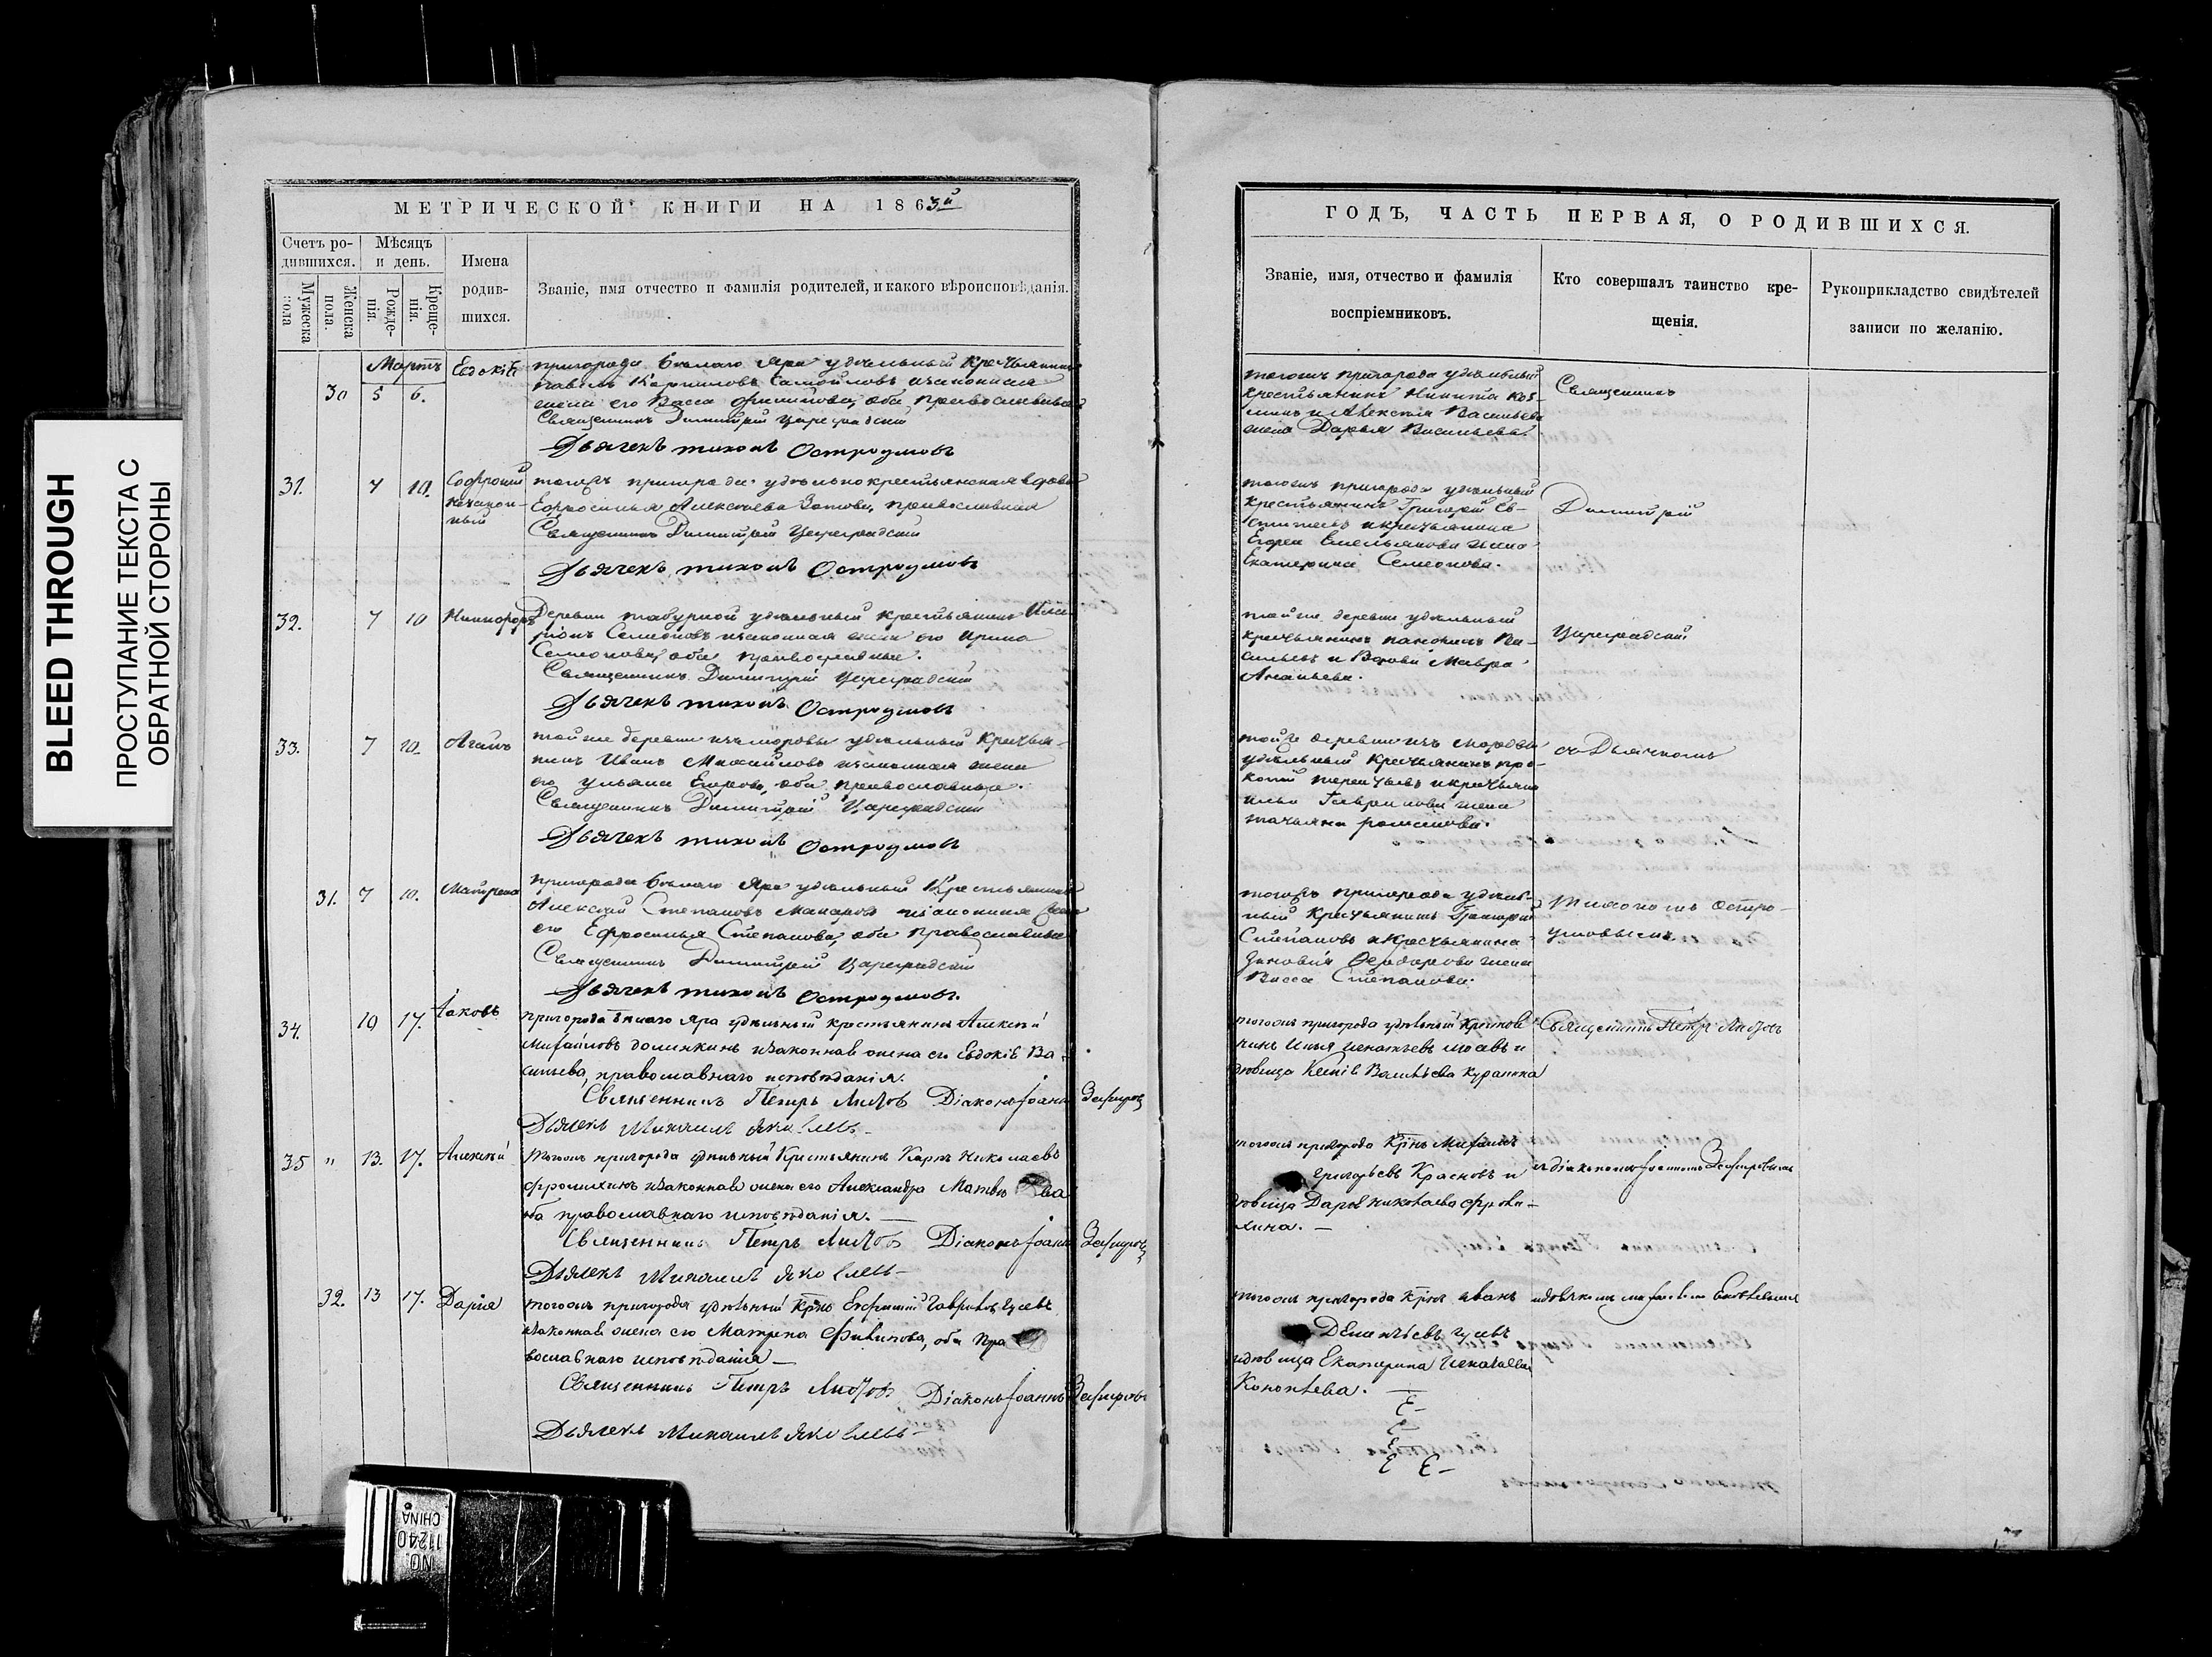 BLEED THROUGH
ПРОСТУПАНИЕ ТЕКСТА С
ОБРАТНОЙ СТОРОНЫ
МЕТРИЧЕСКОЙ КНИГИ НА 1863й
Счетъ ро-
дившихся.
Мѣсяцъ
и день.
Имена
родив-
шихся.
Званіе, имя отчество и фамилія родителей, и какого вѣроисповѣданія.
Мужеска
пола
Женска
пола.
Рожде-
нія.
Креще-
нія.
Мартъ
30 5 6. Евдокія
пригорода Бѣлаго Яра удѣльный Крестьянинъ
Павелъ Карпиловъ Самойловъ и законная
жена его Васса Филипова, оба православные
Священникъ Димитрій Цареградскій
Дьячекъ Тихонъ Остроумовъ
31. 7 10. Софроній
незакон-
ный
тогожъ пригорода удѣльно крестьянская вдова
Ефросинья Алексѣева Зотова, православная
Священникъ Димитрій Цареградскій
Дьячекъ Тихонъ Остроумовъ
32. 7 10 Никифоръ
Деревни Табурной удѣльный крестьянинъ Ила-
ріонъ Семеоновъ и законная жена его Ирина
Семеонова, оба православные.
Священникъ Димитрій Цареградскій
Дьячекъ Тихонъ Остроумовъ
33. 7 10. Агаѳъ
той же деревни изъ мордвы удѣльный Крестья-
нинъ Иванъ Михайловъ и законная жена
его Ульяна Егорова, оба православные.
Священникъ Димитрій Цареградскій
Дьячекъ Тихонъ Остроумовъ
31. 7 10. Матрена
пригорода Бѣлаго Яра удѣльный Крестьянинъ
Алексѣй Степановъ Макаровъ и законная жена
его Ефросинья Степанова, оба православные
Священникъ Димитрій Цареградскій
Дьячекъ Тихонъ Остроумовъ.
34. 10 17. Іаковъ
пригорода Бѣлаго Яра удѣльный крестьянинъ Алексѣй
Михайловъ Долинкинъ и законная жена его Евдокія Ва-
сильева, православнаго исповѣданія.
Священникъ Петръ Діаконъ Іоаннъ Зефировъ
Дьячекъ Михаилъ Яковлевъ
35 " 13. 17. Алексѣй
Тогожъ пригорода удѣльный Крестьянинъ Карпъ Николаевъ
Фролихинъ и законная жена его Александра Матвѣева
оба православнаго исповѣданія.
Священникъ Петръ Діаконъ Іоаннъ Зефировъ
Дьячекъ Михаилъ Яковлевъ
32. 13 17. Дарія
тогожъ пригорода удѣльный Крнъ Гавриловъ Гусевъ
и законная жена его Матрена Филипова, оба пра
вославнаго исповѣданія
Священникъ Петръ Діаконъ Іоаннъ Зефировъ
Дьячекъ Михаилъ Яковлевъ
ГОДЪ, ЧАСТЬ ПЕРВАЯ, О РОДИВШИХСЯ.
Званіе, имя, отчество и фамилія
воспріемниковъ.
Кто совершалъ таинство кре-
щенія.
Рукоприкладство свидѣтелей
записи по желанію.
тогожъ пригорода удѣльный
крестьянинъ Никита Коз-
минъ и Алексѣя Васильева
жена Дарья Васильева.
Священникъ
тогожъ пригорода удѣльный
крестьянинъ Григорій Ев-
и крестьянина
Егора Емельянова жена
Екатерина Семеонова.
Димитрій
той же деревни удѣльный
крестьянинъ Ва-
сильевъ и вдова Мавра
Ананьева.
Цареградскій
той же деревни изъ мордвы
удѣльный крестьянинъ Про-
копій Терентьевъ и крестьянина
Ильи Гаврилова жена
Татьяна Романова.
съ Дьячкомъ
тогожъ пригорода удѣль-
ный Крестьянинъ Григорій
Степановъ и крестьянина
Зиновія Ѳеодорова жена
Васса Степанова.
Тихономъ Остро-
умовымъ
тогожъ пригорода удѣльный крестья
нинъ Илья Игнатьевъ и
дѣвица Васильева Куракина
Священникъ Петръ
тогожъ пригорода Крнъ Михаилъ
Григорьевъ Красновъ и
дѣвица Дарья Николаева Фроли-
хина.
и діакономъ Іоанномъ Зефировымъ
тогожъ пригорода Крнъ Иванъ
Дементьевъ Гусевъ
и дѣвица Екатерина Игнатьева
Коноплева.
NO.
11240
CHINA